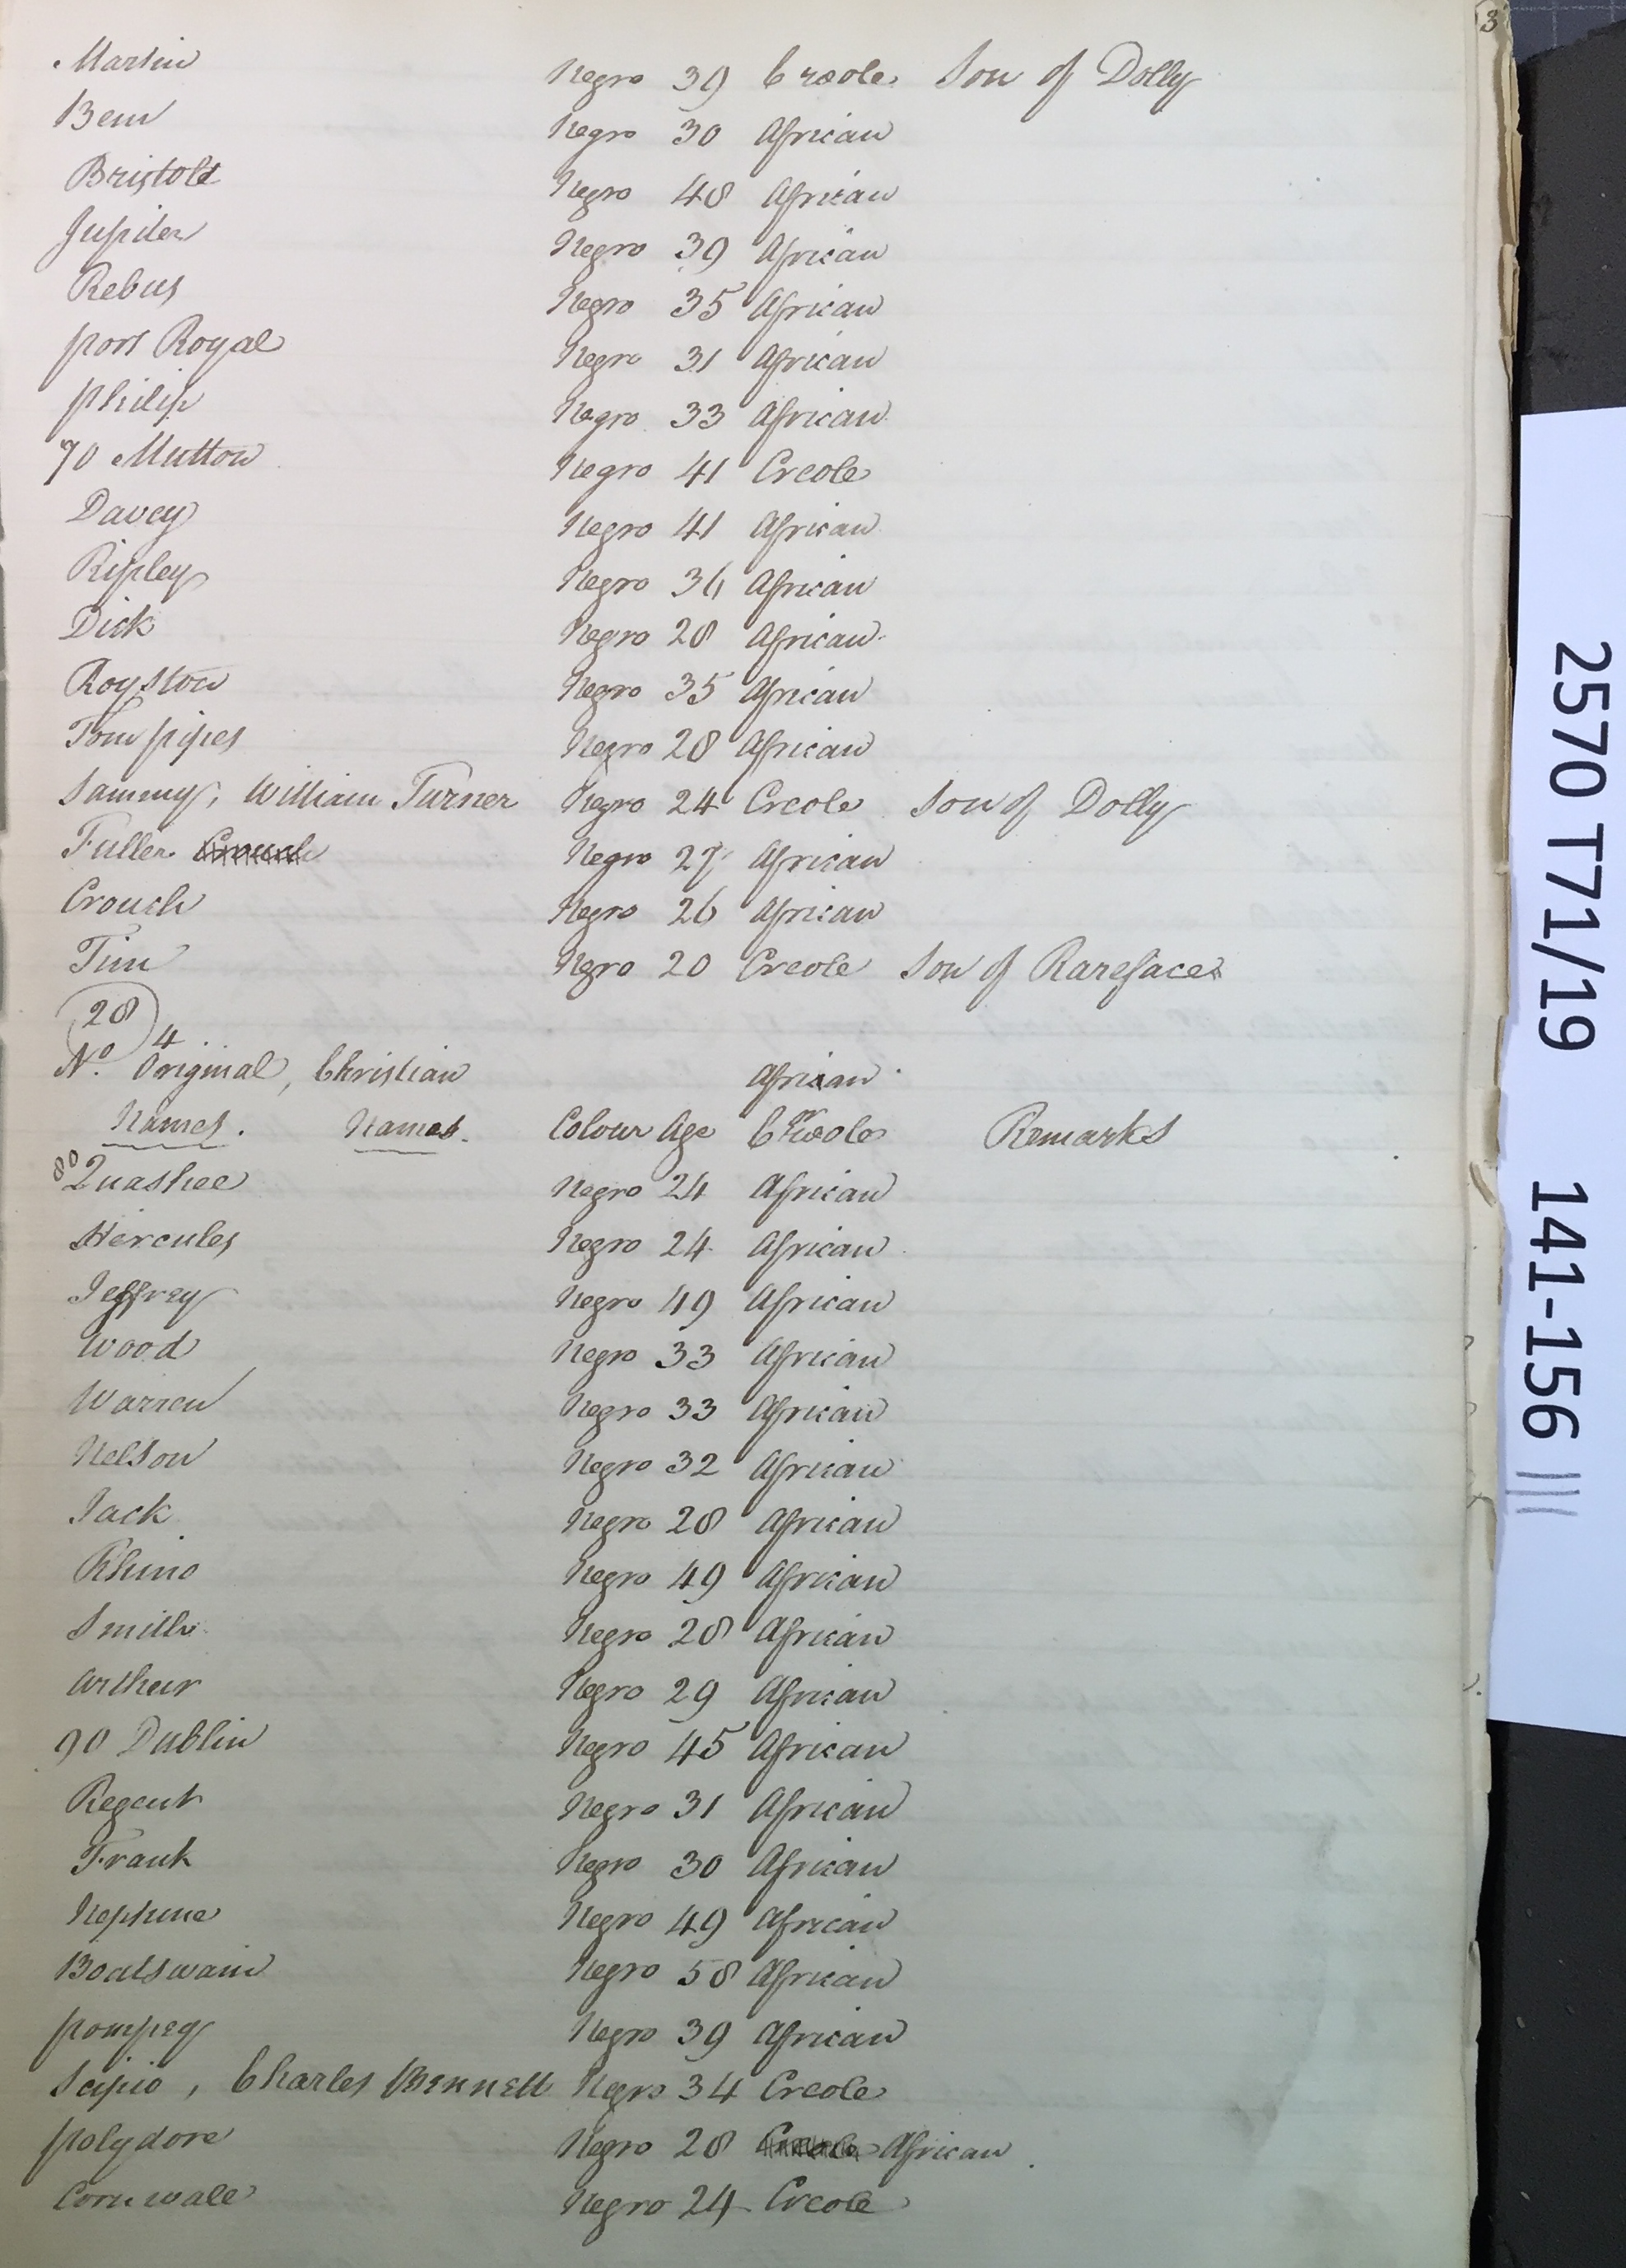 3
Martin Negro 39 Creole Son of Dolly
Ben Negro 30 African
Bristol Negro 48 African
Jupiter Negro 39 African
Rebus Negro 35 African
port Royal Negro 31 African
philip Negro 33 African
70 Mutton Negro 41 Creole
Davey Negro 41 African
Ripley Negro 36 African
Dick Negro 28 African
Royston Negro 35 African
Tom pipes Negro 28 African
Sammy, William Turner Negro 24 Creole Son of Dolly
Fuller Negro 27 African
Crouch Negro 26 African
Tim Negro 20 Creole Son of Rareface
28
4
No. Original, Christian African
Names. Names. Colour Age Creole Remarks
80 Quashee Negro 24 African
Hercules Negro 24 African
Jeffrey Negro 49 African
Wood Negro 33 African
Warren Negro 33 African
Nelson Negro 32 African
Jack Negro 28 African
Rhino Negro 49 African
Smith Negro 28 African
Arthur Negro 29 African
90 Dublin Negro 45 African
Regent Negro 31 African
Frank Negro 30 African
Neptune Negro 49 African
Boatswain Negro 58 African
pompey Negro 39 African
Scipio, Charles Bennett Negro 34 Creole
polydore Negro 28 Creole African
Cornwale Negro 24 Creole
2570 T71/19 141-156